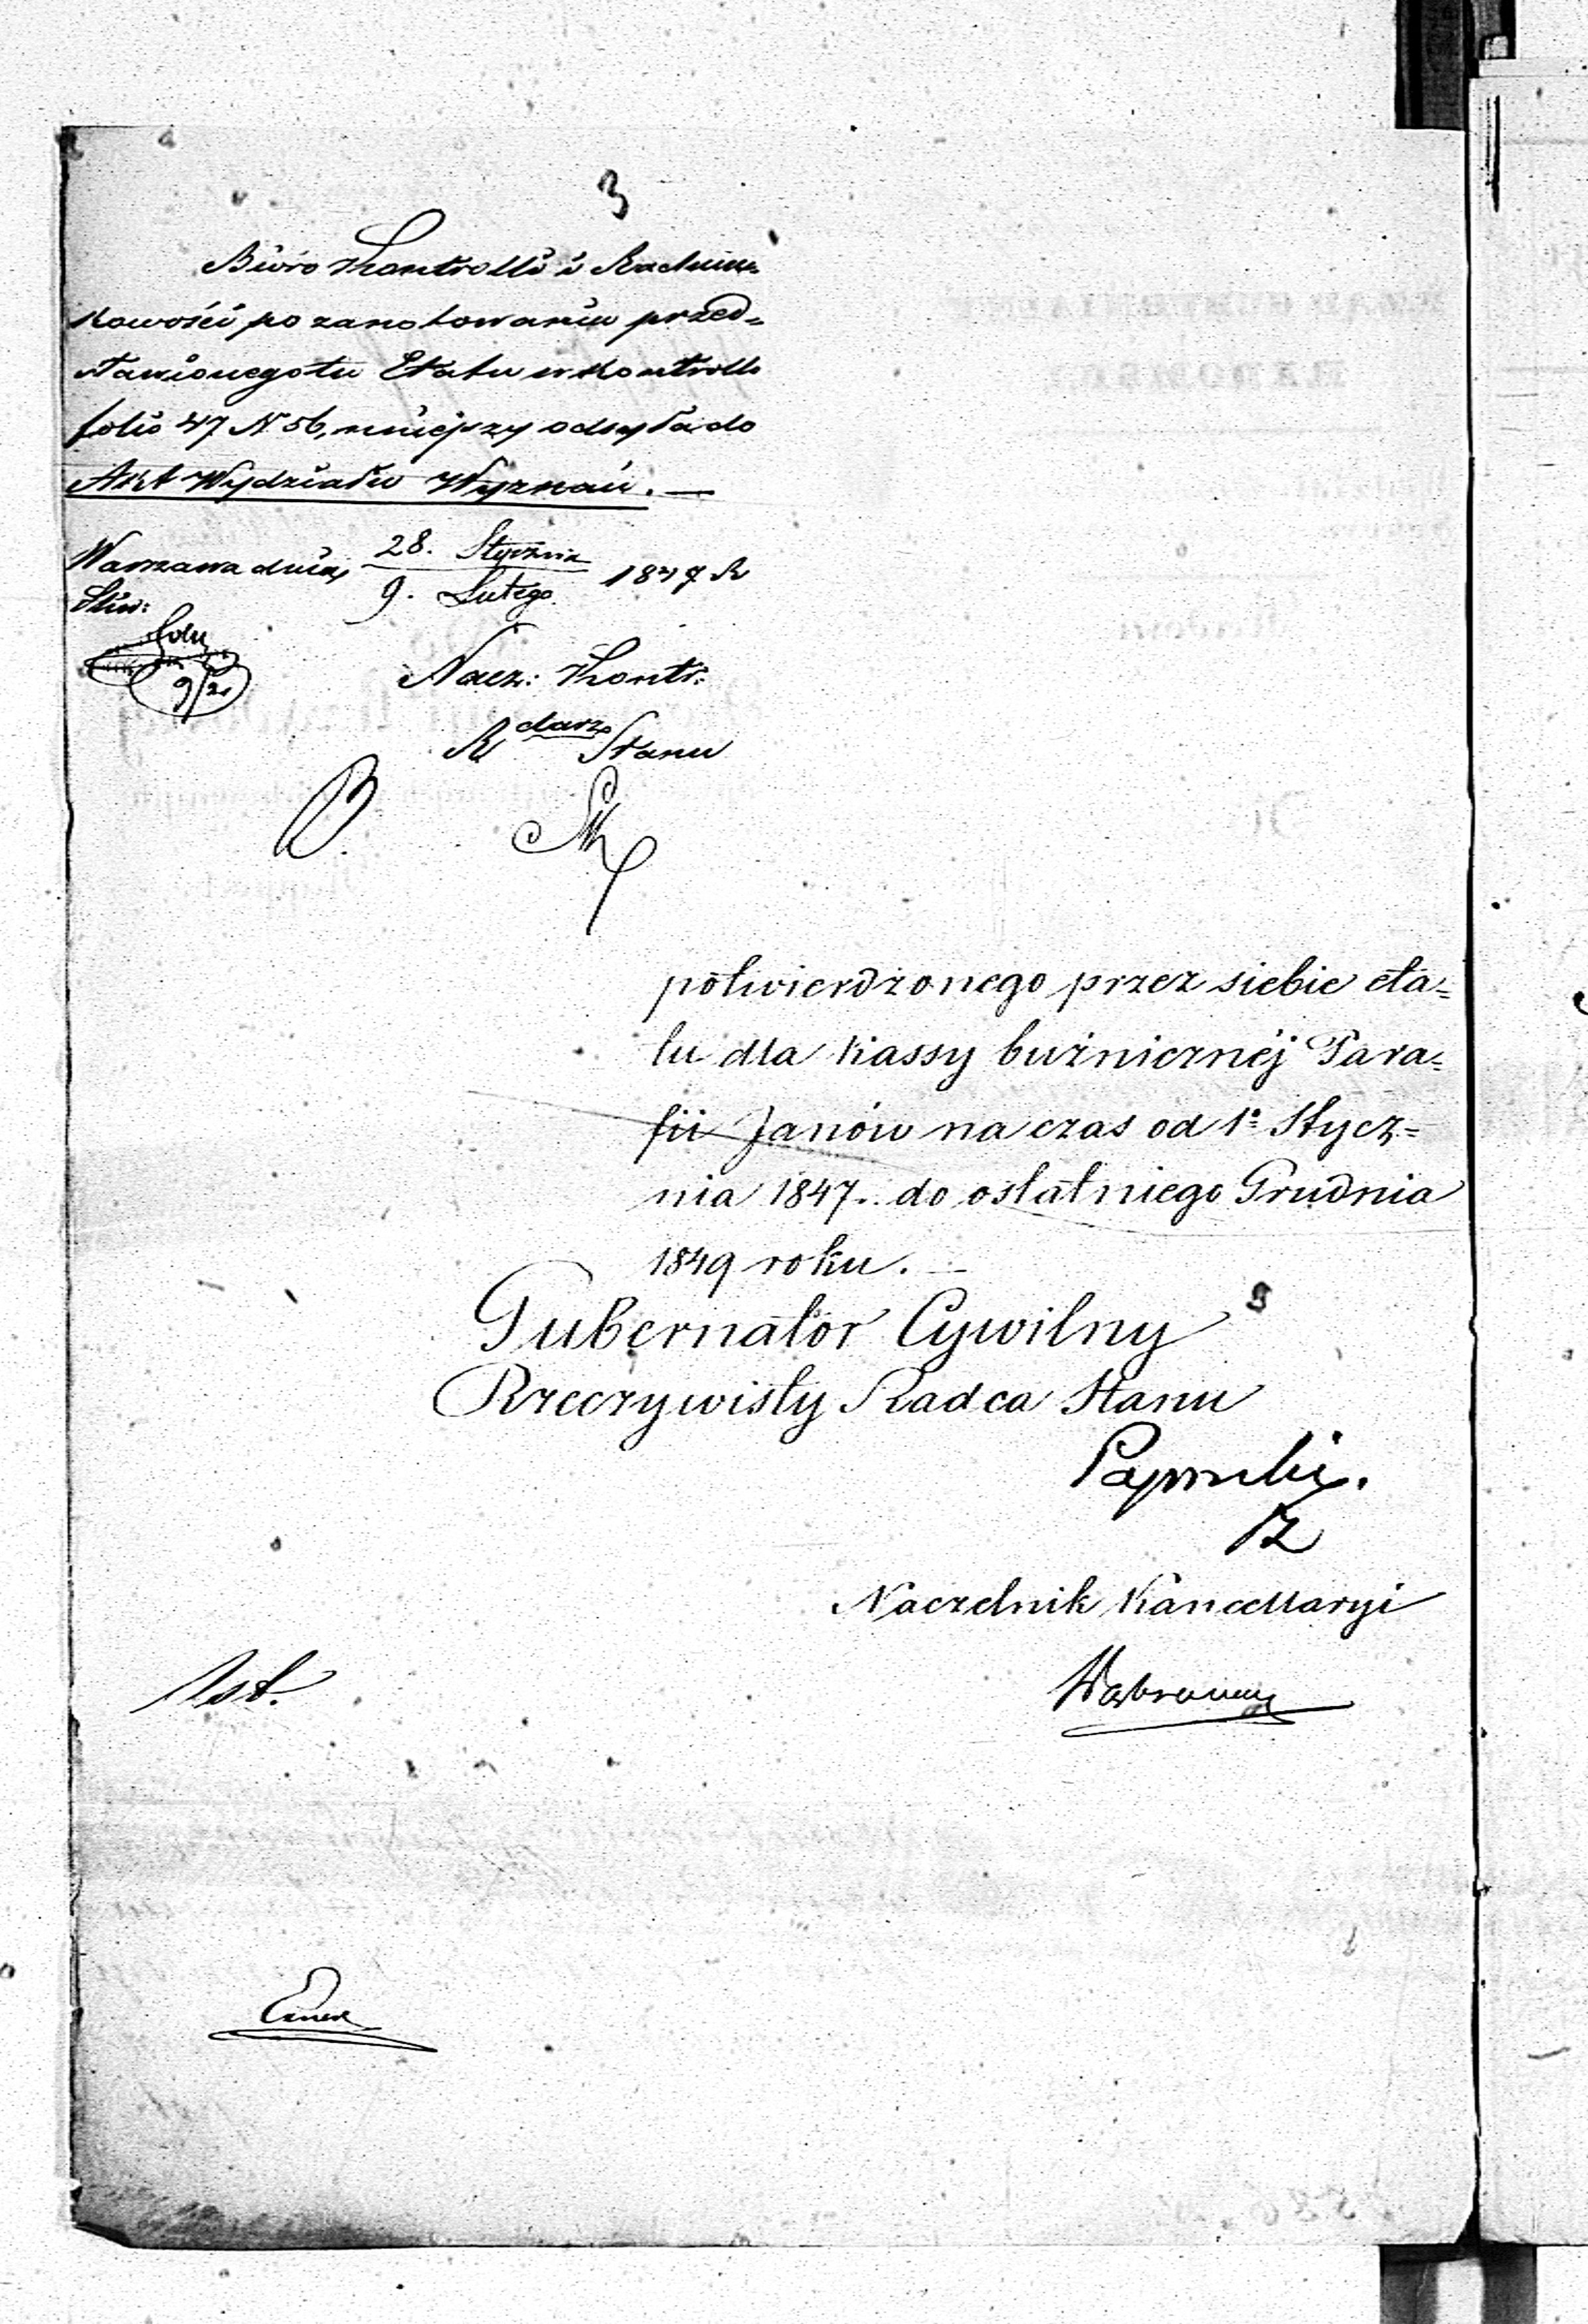 3
Biuro Kontrolli i Rachun=
kowości po zanotowaniu przed=
stawionego tu Etatu w Kontrolli
folio 47 N 56, niniejszy odsyła do
Akt Wydziału Wyznań. —
Warszawa dnia 28. Stycznia / 9. Lutego 1847 R
Nacz: Kontr:
R darz Stanu
potwierdzonego przez siebie eta=
tu dla kassy bużnicznéj Para=
fii Janów na czas od 1º Stycz=
nia 1847. do ostatniego Grudnia
1849 roku. —
Gubernator Cywilny
Rzeczywisty Radca Stanu
Naczelnik Kancellaryi